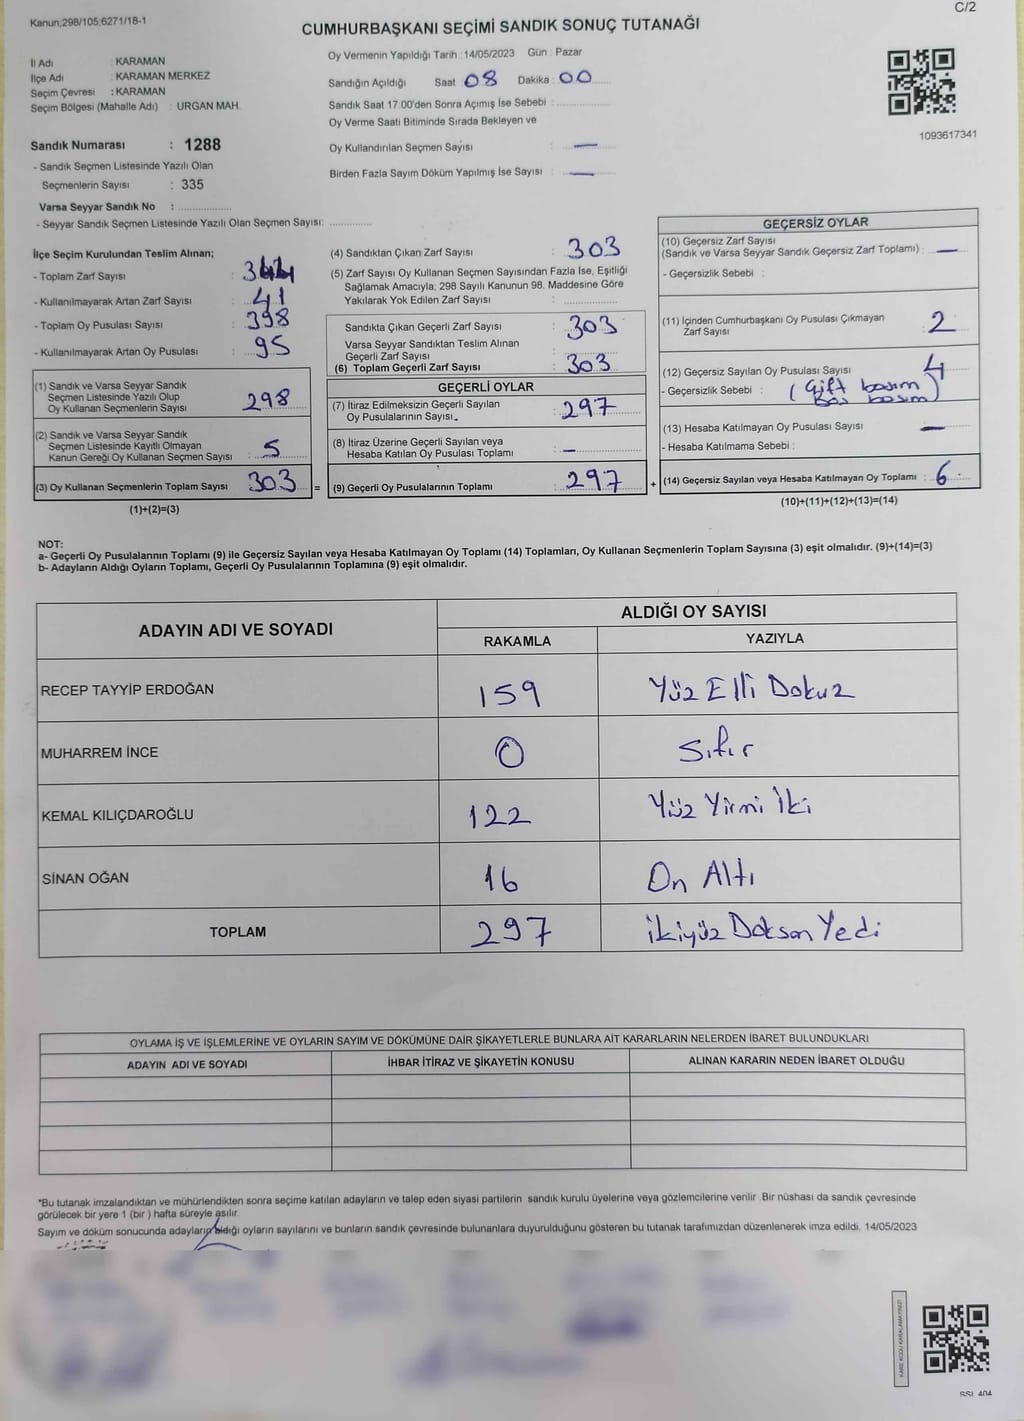 Kanun;298/105;6271/18-1
C/2
CUMHURBAŞKANI SEÇİMİ SANDIK SONUÇ TUTANAĞI
İl Adı : KARAMAN
İlçe Adı : KARAMAN MERKEZ
Seçim Çevresi : KARAMAN
Seçim Bölgesi (Mahalle Adı) : URGAN MAH.
Sandık Numarası : 1288
- Sandık Seçmen Listesinde Yazılı Olan
Seçmenlerin Sayısı : 335
Varsa Seyyar Sandık No :
- Seyyar Sandık Seçmen Listesinde Yazılı Olan Seçmen Sayısı:
Oy Vermenin Yapıldığı Tarih : 14/05/2023 Gün : Pazar
Sandığın Açıldığı Saat 08 Dakika : 00
Sandık Saat 17:00'den Sonra Açımış İse Sebebi :
Oy Verme Saati Bitiminde Sırada Bekleyen ve
Oy Kullandırılan Seçmen Sayısı : —
Birden Fazla Sayım Döküm Yapılmış İse Sayısı : —
1093617341
İlçe Seçim Kurulundan Teslim Alınan;
- Toplam Zarf Sayısı : 344
- Kullanılmayarak Artan Zarf Sayısı : 41
- Toplam Oy Pusulası Sayısı : 398
- Kullanılmayarak Artan Oy Pusulası : 95
(1) Sandık ve Varsa Seyyar Sandık
Seçmen Listesinde Yazılı Olup
Oy Kullanan Seçmenlerin Sayısı : 298
(2) Sandık ve Varsa Seyyar Sandık
Seçmen Listesinde Kayıtlı Olmayan
Kanun Gereği Oy Kullanan Seçmen Sayısı : 5
(3) Oy Kullanan Seçmenlerin Toplam Sayısı : 303
(1)+(2)=(3)
(4) Sandıktan Çıkan Zarf Sayısı : 303
(5) Zarf Sayısı Oy Kullanan Seçmen Sayısından Fazla İse, Eşitliği
Sağlamak Amacıyla; 298 Sayılı Kanunun 98. Maddesine Göre
Yakılarak Yok Edilen Zarf Sayısı :
Sandıkta Çıkan Geçerli Zarf Sayısı : 303
Varsa Seyyar Sandıktan Teslim Alınan
Geçerli Zarf Sayısı :
(6) Toplam Geçerli Zarf Sayısı : 303
GEÇERLİ OYLAR
(7) İtiraz Edilmeksizin Geçerli Sayılan
Oy Pusulalarının Sayısı : 297
(8) İtiraz Üzerine Geçerli Sayılan veya
Hesaba Katılan Oy Pusulası Toplamı : —
= (9) Geçerli Oy Pusulalarının Toplamı : 297 +
GEÇERSİZ OYLAR
(10) Geçersiz Zarf Sayısı
(Sandık ve Varsa Seyyar Sandık Geçersiz Zarf Toplamı) : —
- Geçersizlik Sebebi :
(11) İçinden Cumhurbaşkanı Oy Pusulası Çıkmayan
Zarf Sayısı : 2
(12) Geçersiz Sayılan Oy Pusulası Sayısı : 4
- Geçersizlik Sebebi : (Çift basım
Boş basım)
(13) Hesaba Katılmayan Oy Pusulası Sayısı : —
- Hesaba Katılmama Sebebi :
(14) Geçersiz Sayılan veya Hesaba Katılmayan Oy Toplamı : 6
(10)+(11)+(12)+(13)=(14)
NOT:
a- Geçerli Oy Pusulalarının Toplamı (9) ile Geçersiz Sayılan veya Hesaba Katılmayan Oy Toplamı (14) Toplamları, Oy Kullanan Seçmenlerin Toplam Sayısına (3) eşit olmalıdır. (9)+(14)=(3)
b- Adayların Aldığı Oyların Toplamı, Geçerli Oy Pusulalarının Toplamına (9) eşit olmalıdır.
ADAYIN ADI VE SOYADI
ALDIĞI OY SAYISI
RAKAMLA YAZIYLA
RECEP TAYYİP ERDOĞAN 159 Yüz Elli Dokuz
MUHARREM İNCE 0 Sıfır
KEMAL KILIÇDAROĞLU 122 Yüz Yirmi İki
SİNAN OĞAN 16 On Altı
TOPLAM 297 İkiyüz Doksan Yedi
OYLAMA İŞ VE İŞLEMLERİNE VE OYLARIN SAYIM VE DÖKÜMÜNE DAİR ŞİKAYETLERLE BUNLARA AİT KARARLARIN NELERDEN İBARET BULUNDUKLARI
ADAYIN ADI VE SOYADI İHBAR İTİRAZ VE ŞİKAYETİN KONUSU ALINAN KARARIN NEDEN İBARET OLDUĞU
*Bu tutanak imzalandıktan ve mühürlendikten sonra seçime katılan adayların ve talep eden siyasi partilerin sandık kurulu üyelerine veya gözlemcilerine verilir .Bir nüshası da sandık çevresinde
görülecek bir yere 1 (bir ) hafta süreyle asılır.
Sayım ve döküm sonucunda adayların aldığı oyların sayılarını ve bunların sandık çevresinde bulunanlara duyurulduğunu gösteren bu tutanak tarafımızdan düzenlenerek imza edildi. 14/05/2023
KARE KODU KARALAMAYINIZ!
SSL 404